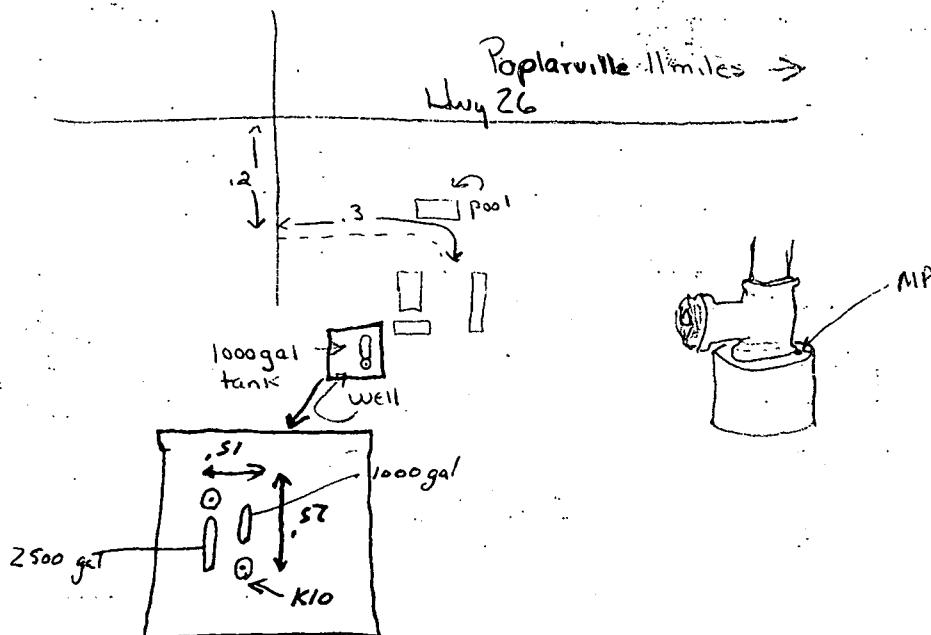 Poplarville 11 miles →
Hwy 26
.2
.3
pool
MP
1000 gal
tank
well
15'
1000 gal
25'
2500 gal
K10